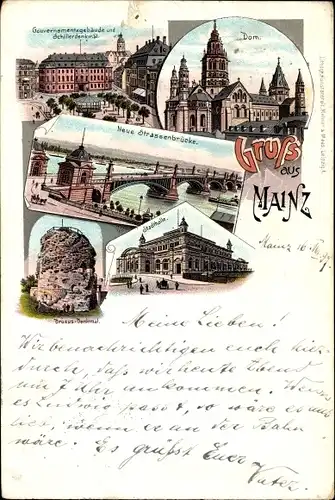 Gouvernementsgebäude und
Schillerdenkmal.
Dom.
Neue Strassenbrücke.
Gruss
aus
MAINZ
Stadthalle.
Drusus-Denkmal.
Mainz 16.
Meine Lieben!
Wir benachrichtigen euch hier-
durch, daß wir heute Abend
um 7 Uhr ankommen. Wenn
es Ludwig passt, so wäre es uns
lieb, wenn er an der Bahn
wäre. Es grüsst Euer
Vater.